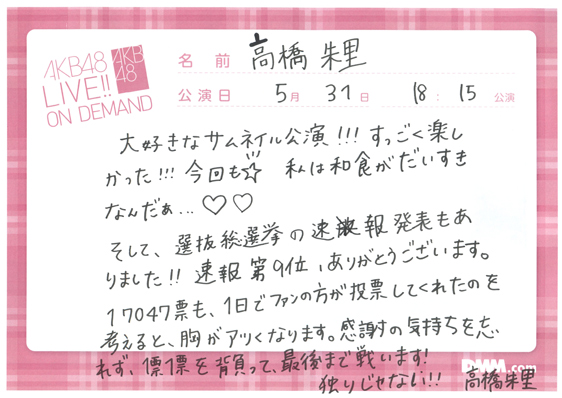 AKB48
LIVE!!
ON DEMAND
AKB
48
名前 高橋朱里
公演日 5月 31日 18:15 公演
大好きなサムネイル公演!!! すっごく楽し
かった!!! 今回も☆ 私は和食がだいすき
なんだぁ...♡♡
そして、選抜総選挙の速報発表もあ
りました!! 速報第9位、ありがとうございます。
17047票も、1日でファンの方が投票してくれたのを
考えると、胸がアツくなります。感謝の気持ちを忘
れず、1票1票を背負って、最後まで戦います!
独りじゃない!! 高橋朱里
DMM.com